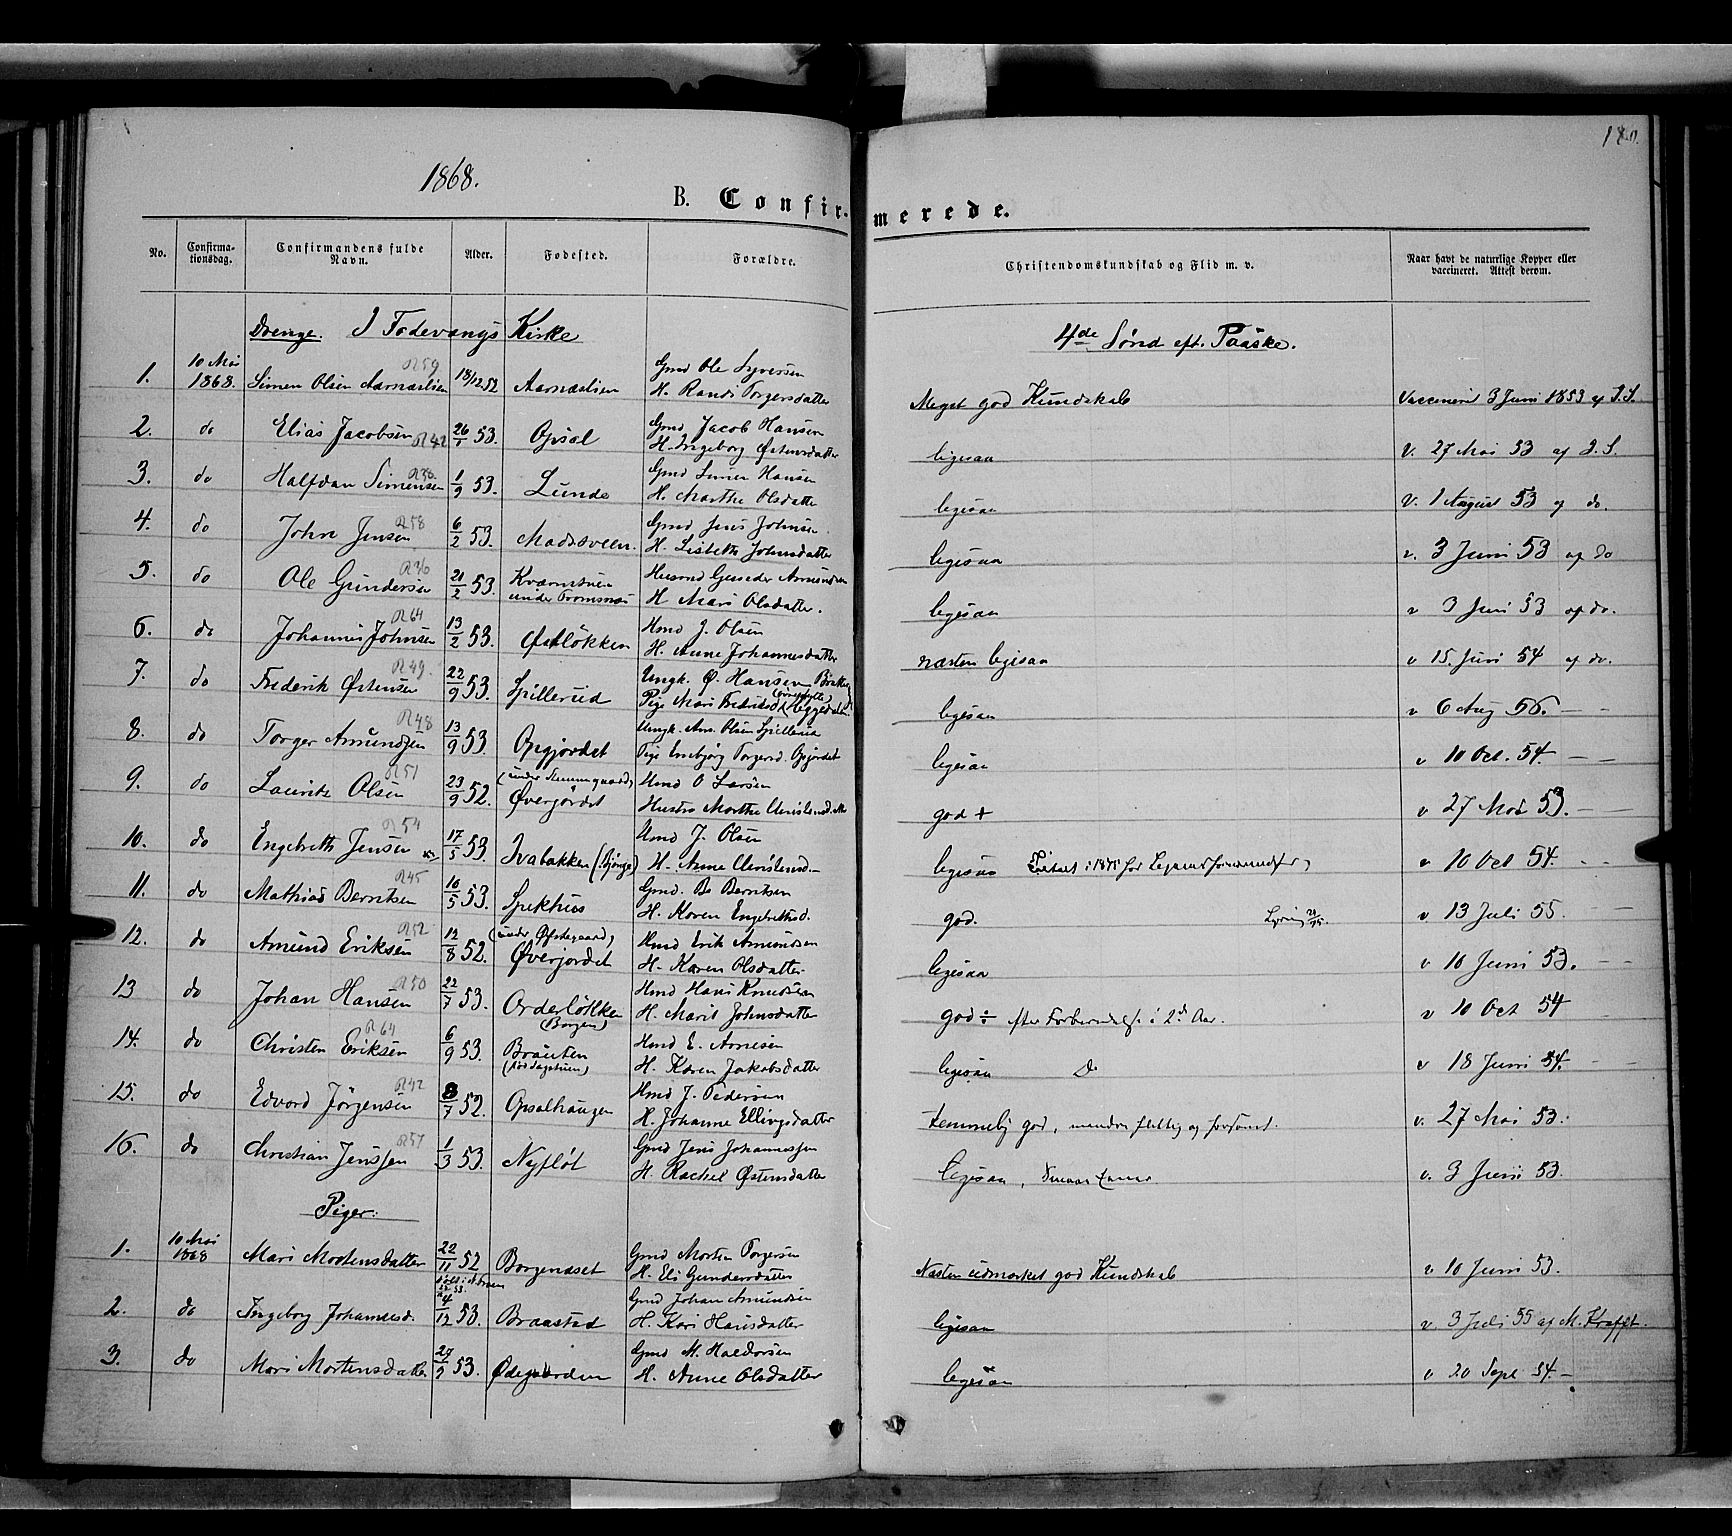 1868.
B. Confir-
merede.
No.
Confirma-
tionsdag.
Confirmandens fulde
Navn.
Alder.
Fødested.
Forældre.
Christendomskundskab og Flid m. v.
Naar havt de naturlige Kopper eller
vaccineret. Attest derom.
Drenge. I Fodevangs Kirke
4de Sønd eft. Paaske.
1. 10 Mai 1868. Simen Olsen Aarnæslien R59 18/12 52 Aarnæslien Gmd Ole Syversen
H. Randi Torgersdatter Meget god Kundskab Vaccineret 3 Juni 1853 af S.S.
2. do Elias Jacobsen R42 26/1 53. Opsal Gmd Jacob Hansen
H. Ingeborg Østensdatter ligesaa v. 27 Mai 53 af S.S.
3. do Halfdan Simensen 1/9 53. Lunde Gmd Simen Hansen
H. Marthe Olsdatter ligesaa v. 1 August 53 af do.
4. do John Jensen R58 6/2 53. Madssveen. Gmd Jens Johnsen.
H. Lisbeth Johnsdatter ligesaa v. 3 Juni 53 af do
5. do Ole Gundersen 21/2 53. Kværnstuen
under Tromsnæs Husmd Gunder Amundsen
H Mari Olsdatter. ligesaa v 3 Juni 53 af do.
6. do Johannes Johnsen R64 13/2 53. Østløkken Hmd J. Olsen
H. Anne Johannesdatter næsten ligesaa v 15. Juni 54 af do.
7. do Frederik Østensen R49. 22/9 53. Spillerud Ungk. Ø. Hansen
Pige Mari ligesaa v 6 Aug 56.
8. do Torger Amundsen R48 13/9 53. Opgjordet Ungk. Am. Olsen Spillerud
Pige Ingebjørg Torgersd. Opjordet ligesaa v 10 Oct. 54.
9. do Lauritz Olsen R51 23/9 52. (under Stemmegaard)
Øverjordet Hmd O Larsen
Hustro Marthe ligesaa god + v 27 Mai 53.
10. do Engebreth Jensen R54 17/5 53. Ivabakken (Bjønge) Hmd J. Olsen
H. Anne Christensd. ligesaa v 10 Oct 54.
11. do Mathias Berntsen R45 10/5 53. Spekhus Gmd. Be Berntsen
H. Karen Engebrethsd. god. v 13 Juli 55.
12. do Amund Eriksen R52 12/8 52. (under Østegaard)
Øverjordet Hmd Erik Amundsen
H. Karen Olsdatter ligesaa v 10 Juni 53.
13 do Johan Hansen R50 22/7 53. Orderløkken
(Borgen) Hmd Hans Knudsen
H. Marit Johnsdatter god ÷ efter Forberedelse i 2det Aar. v 10 Oct 54
14. do Christen Eriksen R64 6/9 53. Bråuten Hmd E. Arnesen
H. Karen Jakobsdatter ligesaa Do v 18 Juni 54.
15. do Edvard Jørgensen R42 8/7 52. Opsalhaugen Hmd J. Pedersen
H. Johanne Ellingsdatter temmelig god, mindre flittig og forsømt. v. 27 Mai 53.
16. do Christian Jenssen R57 1/3 53. Nyfløt Gmd Jens Johannessen
H. Rachel Østensdatter ligesaa, v. 3 Juni 53.
Piger.
1. 10 Mai 1868 Mari Mortensdatter 22/11 52 Borgenæset Gmd Morten Torgersen
H. Eli Gundersdatter Næsten udmærket god Kundskab v 10 Juni 53.
2. do Ingeborg Johannesd. 4/12 53. Braastad Gmd Johan Amundsen
H. Kari Hansdatter ligesaa v. 3 Juli 55 af M. Krafft.
3. do Mari Mortensdatter 29/9 53. Ødegaarden Gmd M. Haldorsen
H. Anne Olsdatter ligesaa v 20 Sept 54.